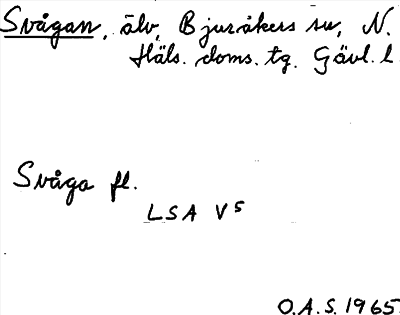 Svågan, älv, Bjuråkers sn, N.
Häls. doms. tg. Gävl. l.
Svåga fl.
LSA V⁵
O.A.S. 1965.